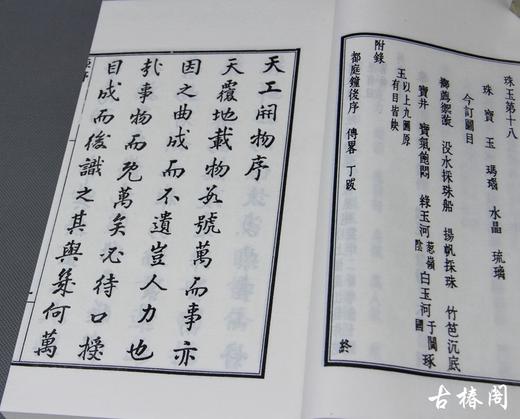 珠玉第十八
珠 寶 玉 瑪瑙 水晶 琉璃
今訂圖目
掷薦禦漩 没水採珠船 揚帆採珠 竹笆沉底
寶井 寶氣飽悶 綠玉河葱嶺陰 白玉河于闐國 琢
玉以上九圖原有目皆缺
附錄
都庭鐘後序 傳畧 丁跋 終
天工開物序
天覆地載物數號萬而事亦
因之曲成而不遺豈人力也
哉事物而旣萬矣必待口授
目成而後識之其與幾何萬
古椿阁